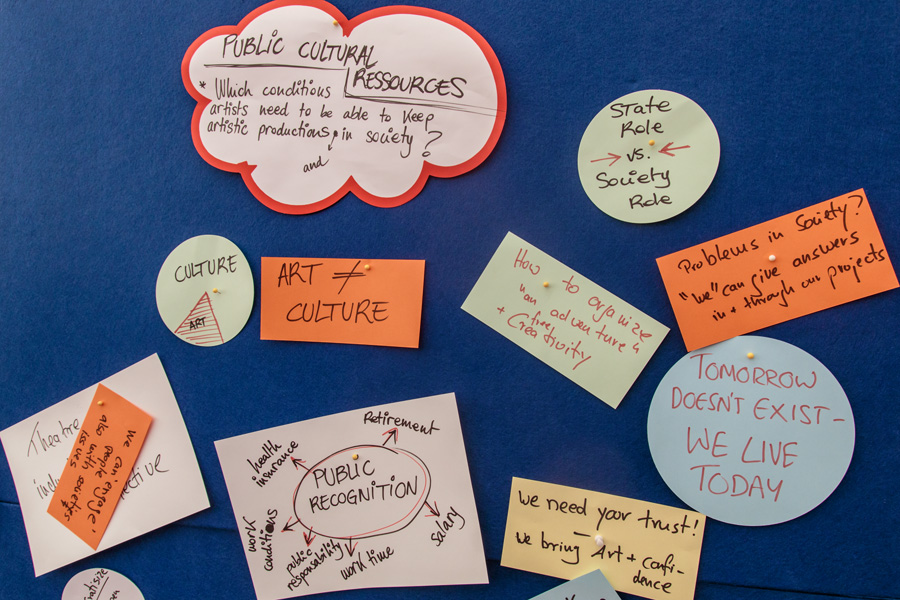 PUBLIC CULTURAL
RESSOURCES
* Which conditions
artists need to be able to keep
artistic productions, in society?
and
State
Role
vs.
Society
Role
Problems in Society?
"we" can give answers
in + through our projects
CULTURE
ART
ART ≠
CULTURE
How to organize
"an adventure"
+ free
Creativity
TOMORROW
DOESN'T EXIST -
WE LIVE
TODAY
Theatre
We can 'engage'
people with
also
PUBLIC
RECOGNITION
Retirement
health
insurance
work
conditions
public
responsability
work time
salary
we need your trust!
we bring Art + confi-
dence